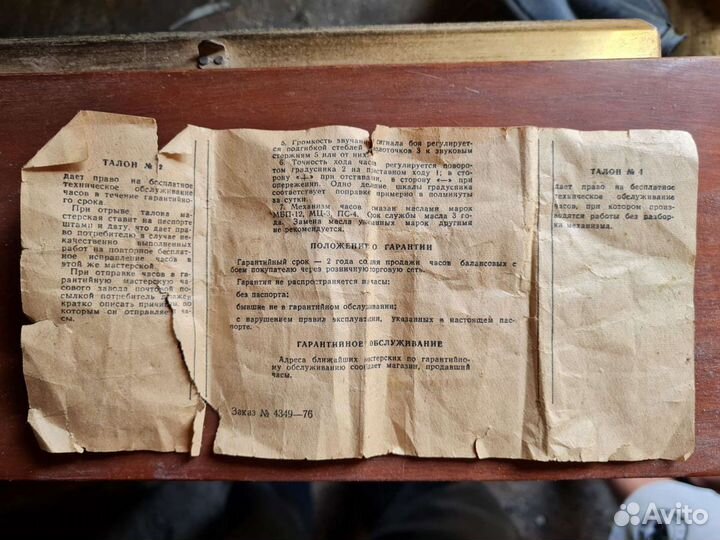 ТАЛОН № 2
Дает право на бесплатное
техническое обслуживание
часов в течение гарантийно-
го срока.
При отрыве талона ма-
стерская ставит на паспорте
штамп и дату, что дает пра-
во потребителю в случае не-
качественно выполненных
работ на повторное бесплат-
ное исправление часов в
этой же мастерской.
При отправке часов в га-
рантийную мастерскую ча-
сового завода почтовой по-
сылкой потребитель должен
кратко описать причины, по
которым он отправляет ча-
сы.
5. Громкость звучания сигнала боя регулирует-
ся подгибкой стеблей молоточков 3 к звуковым
стержням 5 или от них.
6. Точность хода часов регулируется поворо-
том градусника 2 на приставном ходу 1; в сто-
рону «+» при отставании, в сторону «—» при
опережении. Одно деление шкалы градусника
соответствует поправке примерно в полминуты
за сутки.
7. Механизм часов смазан маслами марок
МБП-12, МЦ-3, ПС-4. Срок службы масла 3 го-
да. Замена масла указанных марок другими
не рекомендуется.
ПОЛОЖЕНИЕ О ГАРАНТИИ
Гарантийный срок — 2 года со дня продажи часов балансовых с
боем покупателю через розничную торговую сеть.
Гарантия не распространяется на часы:
без паспорта;
бывшие не в гарантийном обслуживании;
с нарушением правил эксплуатации, указанных в настоящем пас-
порте.
ГАРАНТИЙНОЕ ОБСЛУЖИВАНИЕ
Адреса ближайших мастерских по гарантийно-
му обслуживанию сообщает магазин, продавший
часы.
Заказ № 4349—76
ТАЛОН № 1
Дает право на бесплатное
техническое обслуживание
часов, при котором произ-
водятся работы без разбор-
ки механизма.
Avito